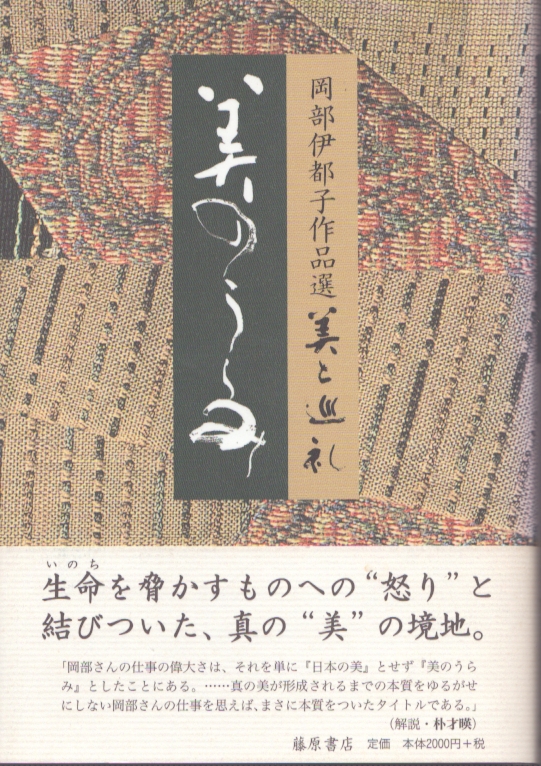 岡部伊都子作品選 美と巡礼
美のうらみ
いのち
生命を脅かすものへの“怒り”と
結びついた、真の“美”の境地。
「岡部さんの仕事の偉大さは、それを単に『日本の美』とせず『美のうら
み』としたことにある。……真の美が形成されるまでの本質をゆるがせ
にしない岡部さんの仕事を思えば、まさに本質をついたタイトルである。」
(解説・朴才暎)
藤原書店 定価 本体2000円+税